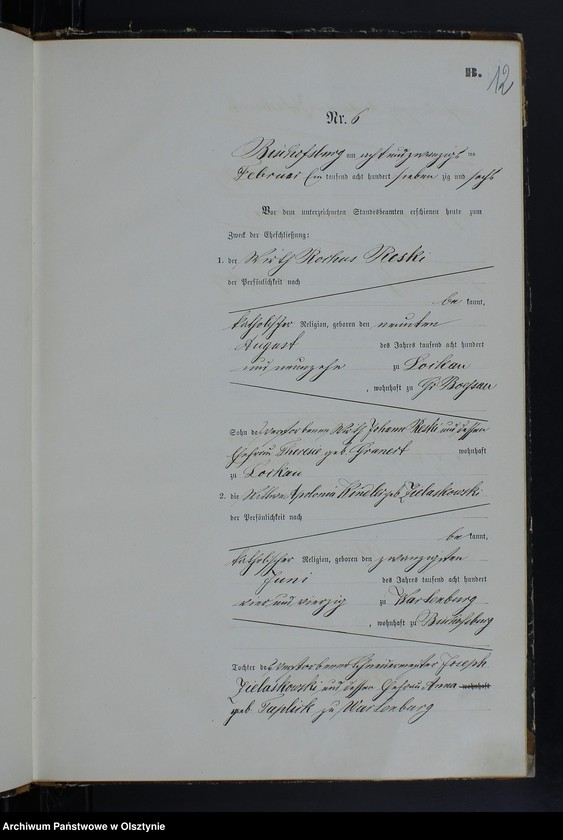 B. 12
Nr. 6
Bischofsburg am acht und zwanzigs ten
Februar Ein tausend acht hundert sieben zig und sechs
Vor dem unterzeichneten Standesbeamten erschienen heute zum
Zweck der Eheschließung:
1. der Wirth Rochus Reski
der Persönlichkeit nach
be kannt,
katholischer Religion, geboren den neunten
August des Jahres tausend acht hundert
und neunzehn zu Lockau
, wohnhaft zu Gr Boessau
Sohn des verstorbenen Wirth Johann Reski und dessen
Ehefrau Therese geb. Granert wohnhaft
zu Lockau
2. die Wittwe Apolonia Kindler geb. Zielaskowski
der Persönlichkeit nach
be kannt,
katholischer Religion, geboren den zwanzigsten
Juni des Jahres tausend acht hundert
vier und vierzig zu Wartenburg
, wohnhaft zu Bischofsburg
Tochter des verstorbenen Schneidermeister Joseph
Zielaskowski und dessen Ehefrau Anna wohnhaft
geb. zu Wartenburg
Archiwum Państwowe w Olsztynie